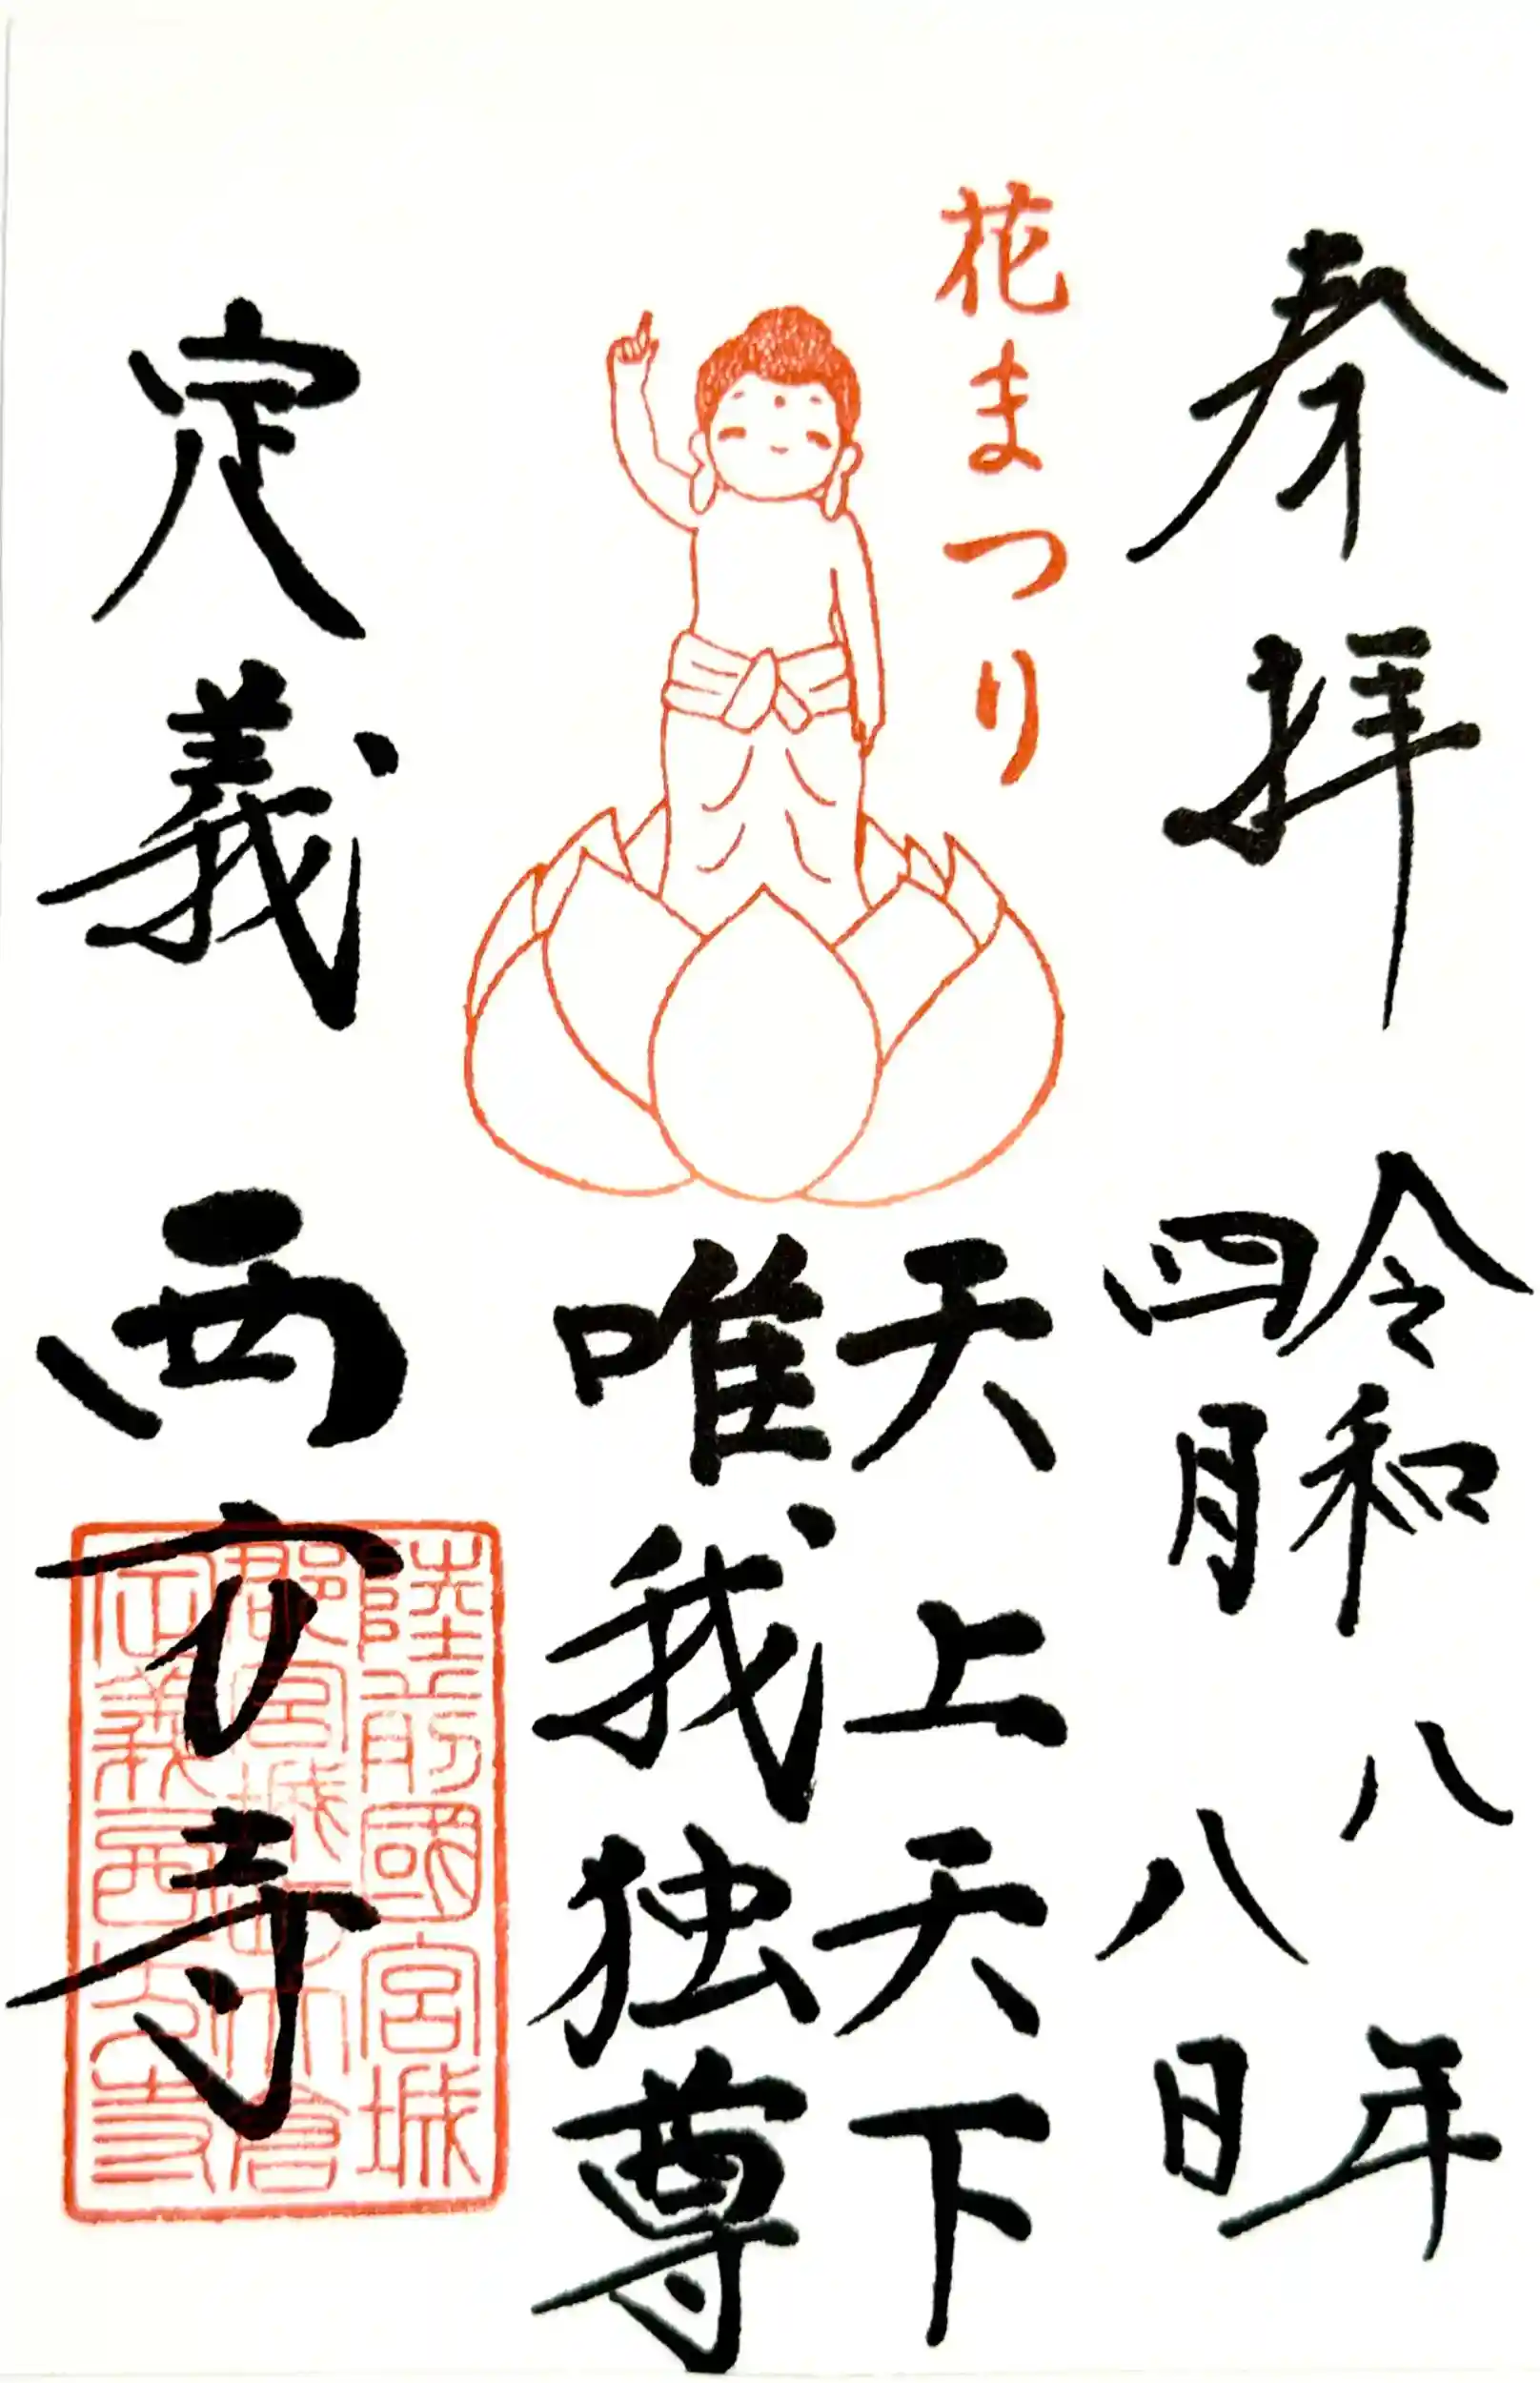 奉拝
令和八年
四月八日
花まつり
天上天下
唯我独尊
定義
西方寺
陸前國宮城